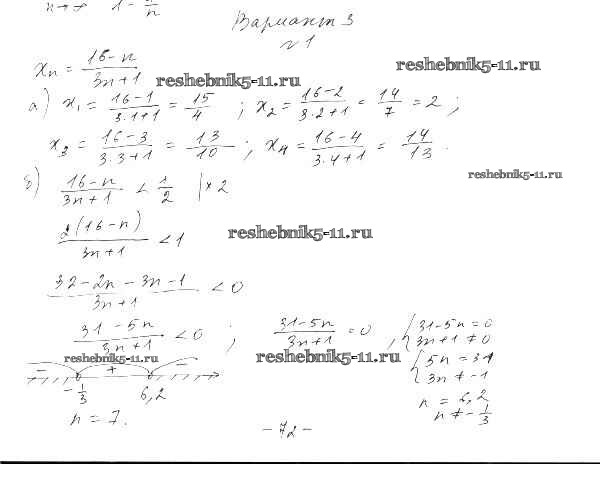 n→∞ 1-
Вариант 3
№1
xn = 16-n / 3n+1
reshebnik5-11.ru
reshebnik5-11.ru
а) x1 = 16-1 / 3·1+1 = 15 / 4 ; x2 = 16-2 / 3·2+1 = 14 / 7 = 2 ;
x3 = 16-3 / 3·3+1 = 13 / 10 ; x4 = 16-4 / 3·4+1 = 14 / 13 .
reshebnik5-11.ru
б) 16-n / 3n+1 < 1 / 2 | × 2
2(16-n) / 3n+1 < 1
reshebnik5-11.ru
32-2n-3n-1 / 3n+1 < 0
31-5n / 3n+1 < 0 ; 31-5n / 3n+1 = 0 , { 31-5n = 0
3n+1 ≠ 0
reshebnik5-11.ru
reshebnik5-11.ru
{ 5n = 31
3n ≠ -1
- + -
-1/3 6,2
n = 6,2
n ≠ -1/3
n = 7.
-72-